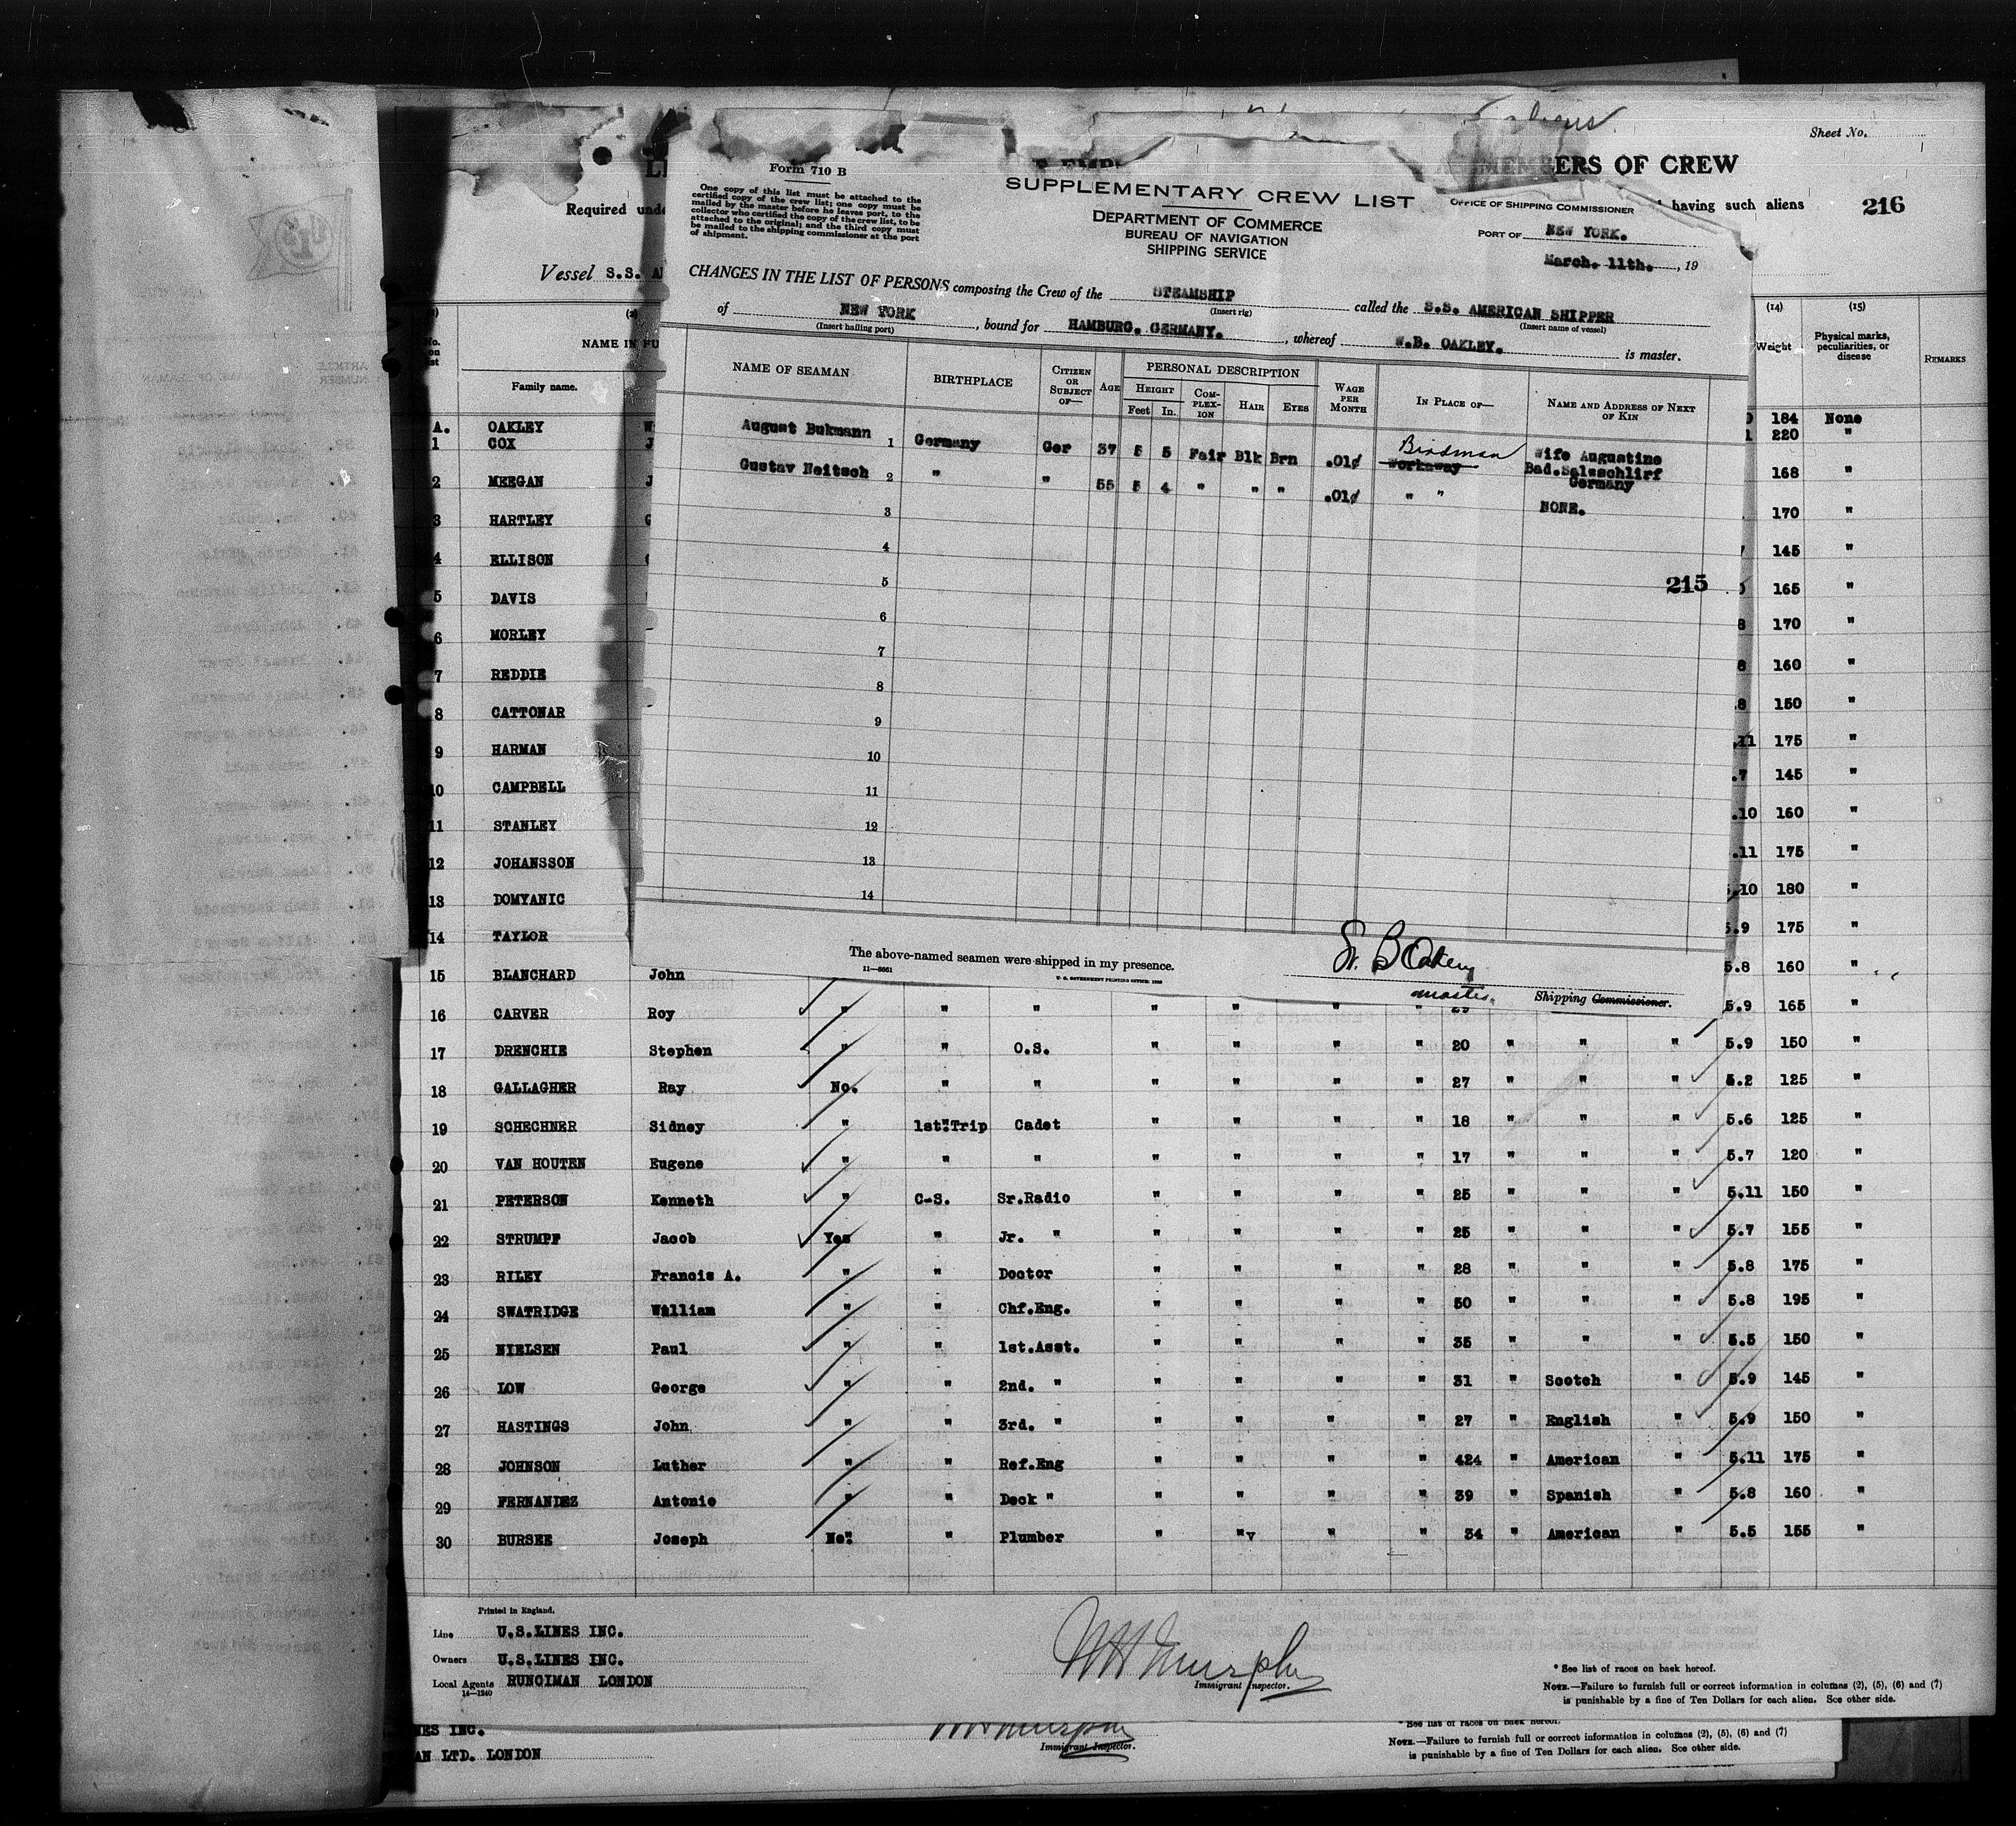 Sheet No.
MEMBERS OF CREW
Required unde
having such aliens
216
Vessel S.S. A
Form 710 B
One copy of this list must be attached to the
certified copy of the crew list; one copy must be
mailed by the master before he leaves port, to the
collector who certified the copy of the crew list, to be
attached to the original; and the third copy must
be mailed to the shipping commissioner at the port
of shipment.
SUPPLEMENTARY CREW LIST
DEPARTMENT OF COMMERCE
BUREAU OF NAVIGATION
SHIPPING SERVICE
OFFICE OF SHIPPING COMMISSIONER
PORT OF NEW YORK.
March. 11th. , 19
CHANGES IN THE LIST OF PERSONS composing the Crew of the STEAMSHIP called the S.S. AMERICAN SHIPPER
(Insert rig) (Insert name of vessel)
of NEW YORK , bound for HAMBURG. GERMANY. , whereof W.B. OAKLEY. is master.
(Insert hailing port)
NAME OF SEAMAN BIRTHPLACE CITIZEN OR SUBJECT OF— AGE PERSONAL DESCRIPTION WAGE PER MONTH IN PLACE OF— NAME AND ADDRESS OF NEXT OF KIN
HEIGHT COMPLEXION HAIR EYES
Feet In.
August Bukmann 1 Germany Ger 37 5 5 Fair Blk Brn .01¢ Workaway Birdman Wife Augustine
Bad.Salzschlirf
Germany
Gustav Neitsch 2 " " 55 5 4 " " " .01¢ " " NONE.
3
4
5
215
6
7
8
9
10
11
12
13
14
The above-named seamen were shipped in my presence.
11—8651
U. S. GOVERNMENT PRINTING OFFICE: 1933
W. B Oakley
master.
Shipping Commissioner.
No. on list
NAME IN FU
Family name.
(14) (15)
Weight Physical marks, peculiarities, or disease REMARKS
A. OAKLEY W 184 None
1 COX J 220 "
2 MEEGAN J 168 "
3 HARTLEY G 170 "
4 ELLISON 145 "
5 DAVIS 165 "
6 MORLEY 8 170 "
7 REDDIE 8 160 "
8 CATTONAR .8 150 "
9 HARMAN .11 175 "
10 CAMPBELL .7 145 "
11 STANLEY .10 160 "
12 JOHANSSON .11 175 "
13 DOMYANIC 5.10 180 "
14 TAYLOR 5.9 175 "
15 BLANCHARD John 5.8 160 "
16 CARVER Roy " " " " " " " " 5.9 165 "
17 DRENCHIE Stephen " " O.S. " " " " 20 " " " 5.9 150 "
18 GALLAGHER Ray No. " " " " " " 27 " " " 5.2 125 "
19 SCHECHNER Sidney " 1st"Trip Cadet " " " " 18 " " " 5.6 125 "
20 VAN HOUTEN Eugene " " " " " " " 17 " " " 5.7 120 "
21 PETERSON Kenneth " C-S. Sr.Radio " " " " 25 " " " 5.11 150 "
22 STRUMPF Jacob Yes " Jr. " " " " " 25 " " " 5.7 155 "
23 RILEY Francis A. " " Doctor " " " " 28 " " " 5.8 175 "
24 SWATRIDGE William " " Chf.Eng. " " " " 50 " " " 5.8 195 "
25 NIELSEN Paul " " 1st.Asst. " " " " 35 " " " 5.5 150 "
26 LOW George " " 2nd. " " " " " 31 " Scotch " 5.9 145 "
27 HASTINGS John " " 3rd. " " " " " 27 " English " 5.9 150 "
28 JOHNSON Luther " " Ref.Eng " " " " 424 " American " 5.11 175 "
29 FERNANDEZ Antonio " " Deck " " " " " 39 " Spanish " 5.8 160 "
30 BURSEE Joseph No" " Plumber " " " " 34 " American " 5.5 155 "
Printed in England.
Line U.S.LINES INC.
Owners U.S.LINES INC.
Local Agents RUNCIMAN LONDON
14—1240
W H Murphy
Immigrant Inspector.
* See list of races on back hereof.
NOTE.—Failure to furnish full or correct information in columns (2), (5), (6) and (7)
is punishable by a fine of Ten Dollars for each alien. See other side.
NES INC.
AN LTD. LONDON
W H Murphy
Immigrant Inspector.
* See list of races on back hereof.
NOTE.—Failure to furnish full or correct information in columns (2), (5), (6) and (7)
is punishable by a fine of Ten Dollars for each alien. See other side.